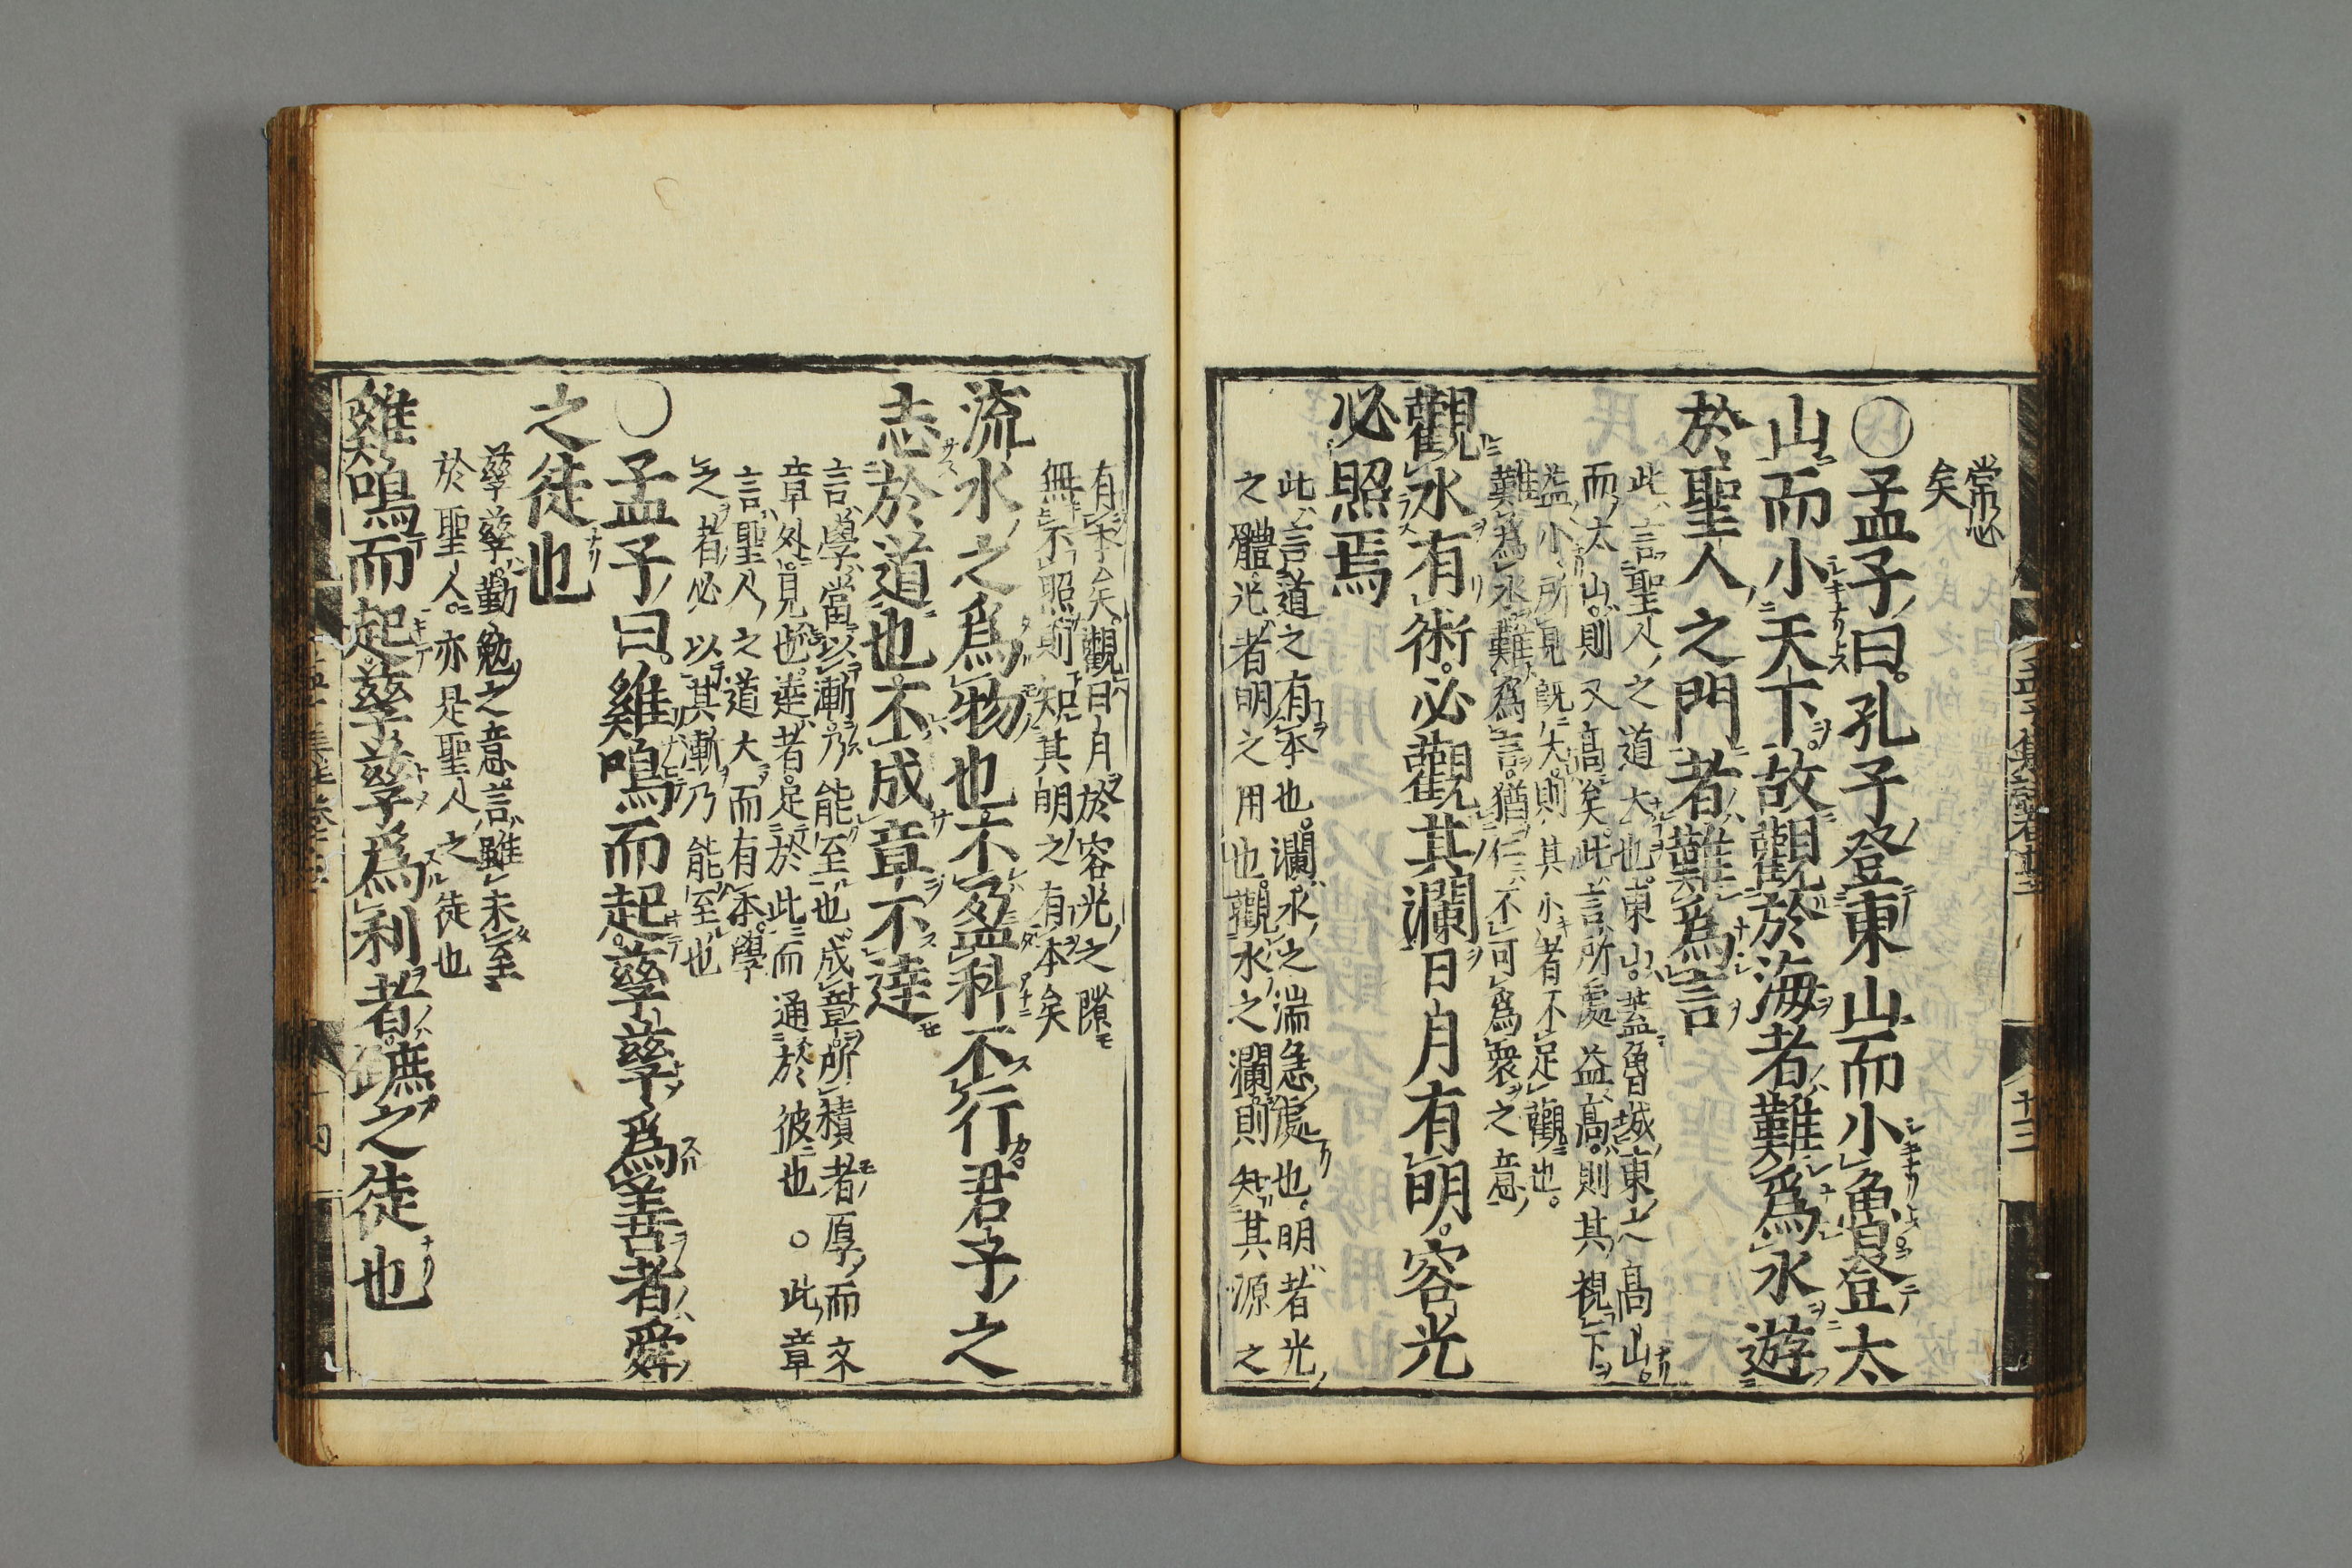 常心
矣
○孟子曰。孔子登東山而小魯登太
山而小天下。故觀於海者難爲水遊
於聖人之門者難爲言
此言聖人之道大也。東山。蓋魯城東之高山。
而太山。則又高矣。此言所處益高。則其視下
益小。所見旣大。則其小者不足觀也。
難爲水。難爲言。猶仁不可爲衆之意
觀水有術。必觀其瀾日月有明。容光
必照焉
此言道之有本也。瀾水之湍急處也。明者光
之體。光者明之用也。觀水之瀾則知其源之
有本矣。觀日月於容光之隙
無不照則知其明之有本矣
流水之爲物也。不盈科不行。君子之
志於道也。不成章不達
言學當以漸。乃能至也。成章。所積者厚而文
章外見也。達者。足於此而通於彼也。○此章
言聖人之道大而有本。學
之者必以其漸乃能至也
○孟子曰。雞鳴而起。孳孳爲善者舜
之徒也
孳孳勤勉之意。言雖未至
於聖人。亦是聖人之徒也
雞鳴而起。孳孳爲利者。蹠之徒也
十三